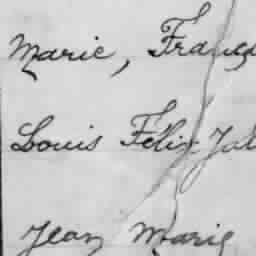 Marie, Franç
Louis Félix Jul
Jean Marie